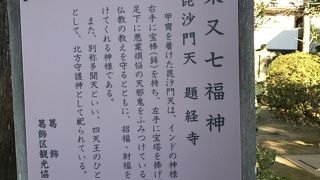 又七福神
毘沙門天 題経寺
甲冑を着けた毘沙門天は、インドの神様
右手に宝棒（鉾）を持ち、左手に宝塔を捧げ
足下に悪業煩悩の天邪鬼をふみつけている
仏教の教えを守るとともに、招福・財福を
けてくれる神様である。
また、別称多聞天といい、四天王のひと
として、北方守護神として祀られている。
葛飾
葛飾区観光協